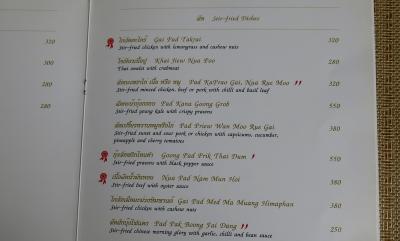 320
300
280
280
ผัด Stir-fried Dishes
ไก่ผัดตะไคร้ Gai Pad Takrai 320
Stir-fried chicken with lemongrass and cashew nuts
ไข่เจียวปู Khai Jiew Nua Poo 280
Thai omelet with crabmeat
ผัดกะเพราไก่ เนื้อ หรือ หมู Pad KaPrao Gai, Nua Rue Moo 320
Stir-fried minced chicken, beef or pork with chilli and basil leaf
Pad Kana Goong Grob 550
Stir-fried young kale with crispy prawns
Pad Priew Wan Moo Rue Gai 380
Stir-fried sweet and sour pork or chicken with capsicums, cucumber,
pineapple and cherry tomatoes
กุ้งผัดพริกไทยดำ Goong Pad Prik Thai Dum 550
Stir-fried prawns with black pepper sauce
เนื้อผัดน้ำมันหอย Nua Pad Nam Mun Hoi 380
Stir-fried beef with oyster sauce
ไก่ผัดเม็ดมะม่วงหิมพานต์ Gai Pad Med Ma Muang Himaphan 380
Stir-fried chicken with cashew nuts
ผัดผักบุ้งไฟแดง Pad Pak Boong Fai Dang 250
Stir-fried chinese morning glory with garlic, chilli and bean sauce